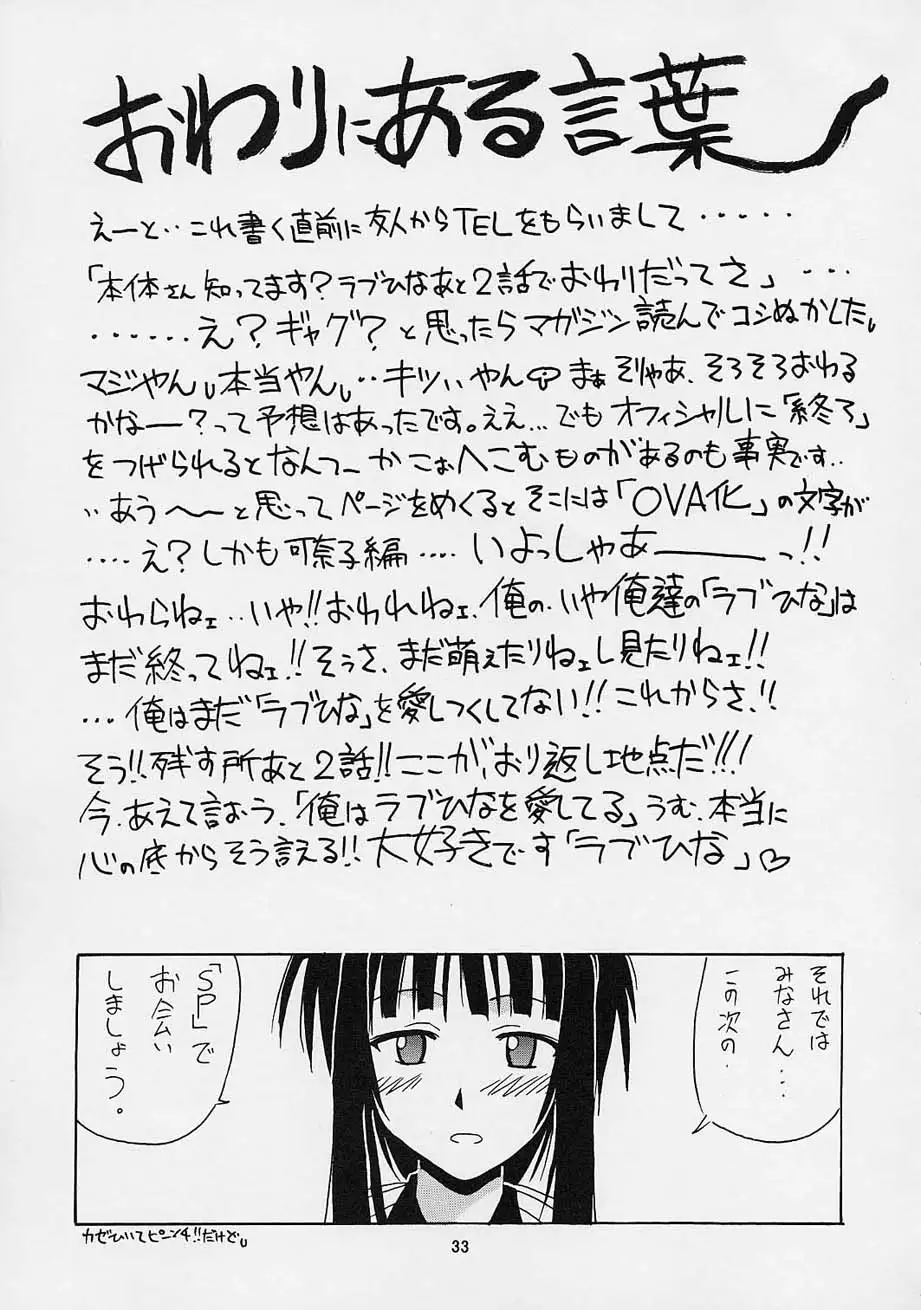 おわりにある言葉
えーと‥これ書く直前に友人からTELをもらいまして‥‥‥
「本体さん知ってます?ラブひなあと2話でおわりだってさ」‥‥
‥‥‥え?ギャグ?と思ったらマガジン読んでコシぬかした。
マジやん。本当やん。‥キツいやん まぁそりゃあ、そろそろおわる
かなー?って予想はあったです。ええ…でもオフィシャルに「終了」
をつげられるとなんてーかこぉへこむものがあるのも事実です‥
‥あう〜〜と思ってページをめくるとそこには「OVA化」の文字が
‥‥え?しかも可奈子編‥‥いよっしゃあーーーっ!!
おわらねェ‥いや!!おわれねェ、俺の、いや俺達の「ラブひな」は
まだ終ってねェ!!そうさ、まだ萌えたりねェし見たりねェ!!
‥‥俺はまだ「ラブひな」を愛しつくしてない!!これからさ!!
そう!!残す所あと2話!!ここが、おり返し地点だ!!!
今、あえて言おう、「俺はラブひなを愛してる」うむ、本当に
心の底からそう言える!!大好きです「ラブひな」♡
それでは
みなさん…
この次の
「SP」で
お会い
しましょう。
カゼひいてピーンチ!!だけど。
33